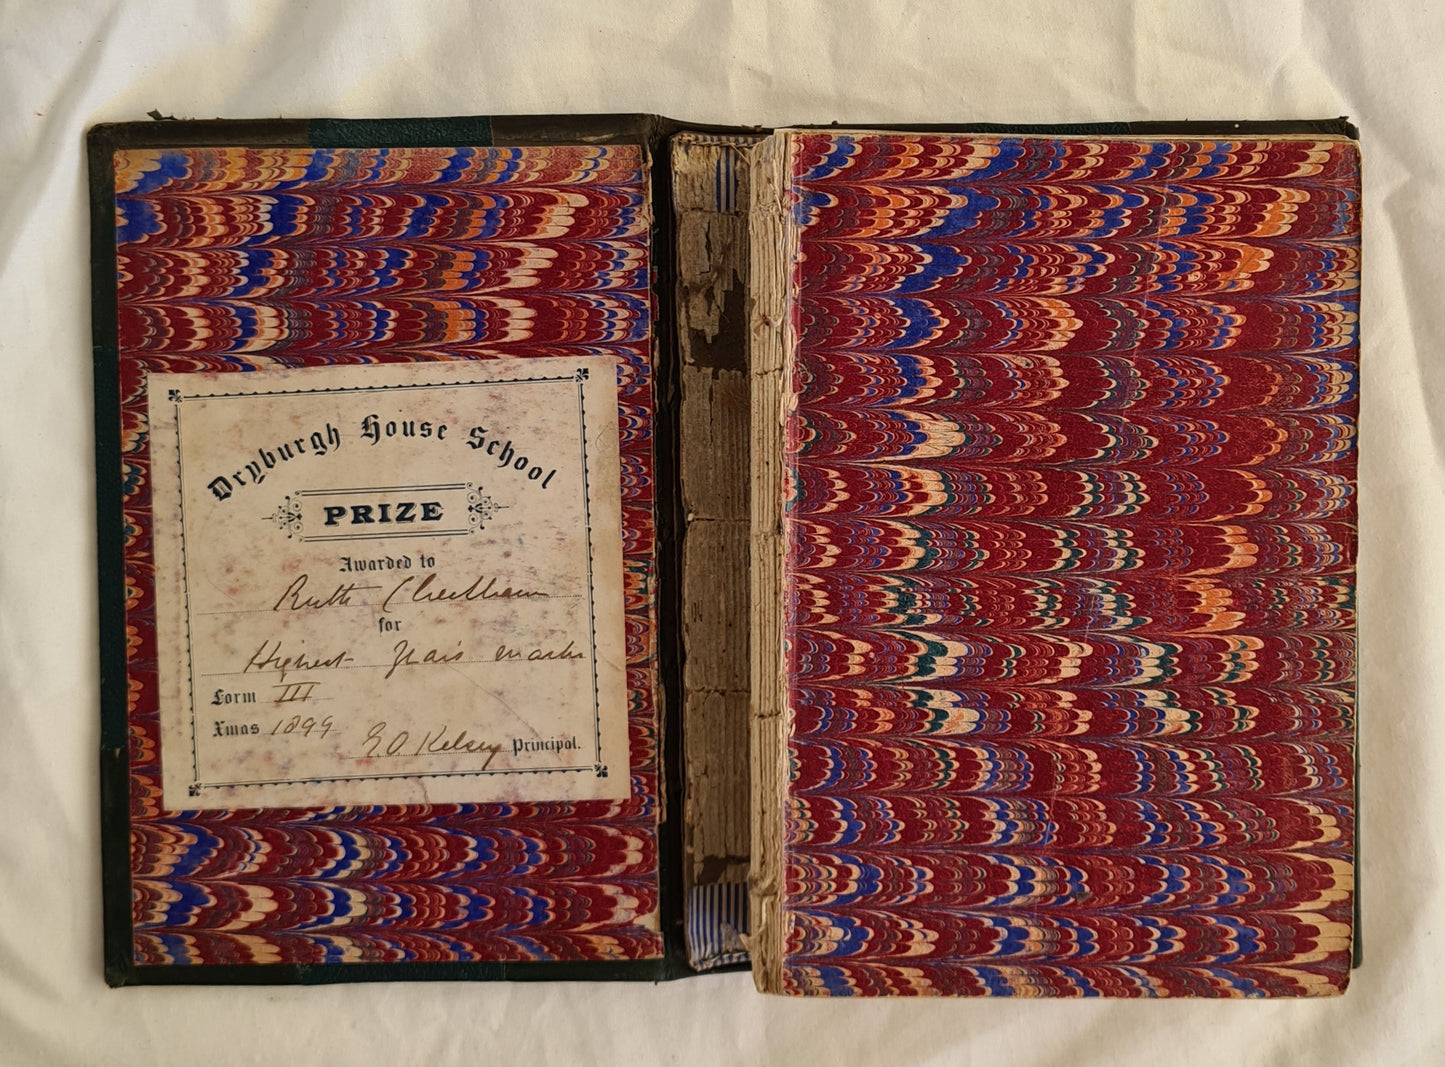 Dryburgh House School
PRIZE
Awarded to
Ruth Cheetham
for
Highest Year's marks
Form III
Xmas 1899
E O Kelsey Principal.